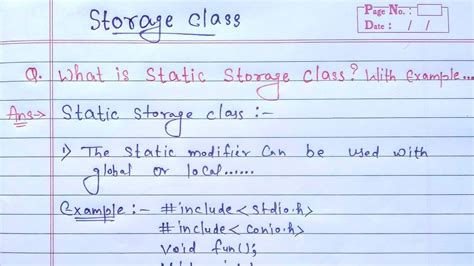 Storage Class
Page No. :
Date : / /
Q. What is Static Storage Class? With Example...
Ans→ Static Storage class :-
1) The static modifier can be used with
global or local......
Example :- #include<stdio.h>
#include<conio.h>
Void fun();